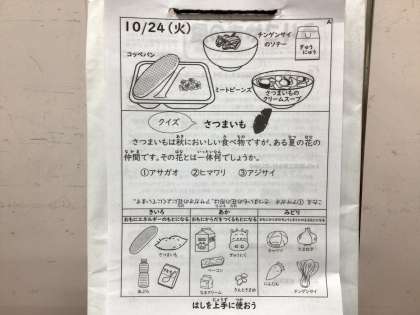 10/24(火)
チンゲンサイ
のソテー
ぎゅう
にゅう
コッペパン
ミートビーンズ
さつまいもの
クリームスープ
クイズ
さつまいも
さつまいもは秋においしい食べ物ですが、ある夏の花の
仲間です。その花とは一体何でしょうか。
①アサガオ ②ヒマワリ ③アジサイ
きいろ
おもにエネルギーのもとになる
あか
おもにからだをつくるもとになる
みどり
さつまいも
ぎゅうにく
ベーコン
にんじん
チンゲンサイ
はしを上手に使おう